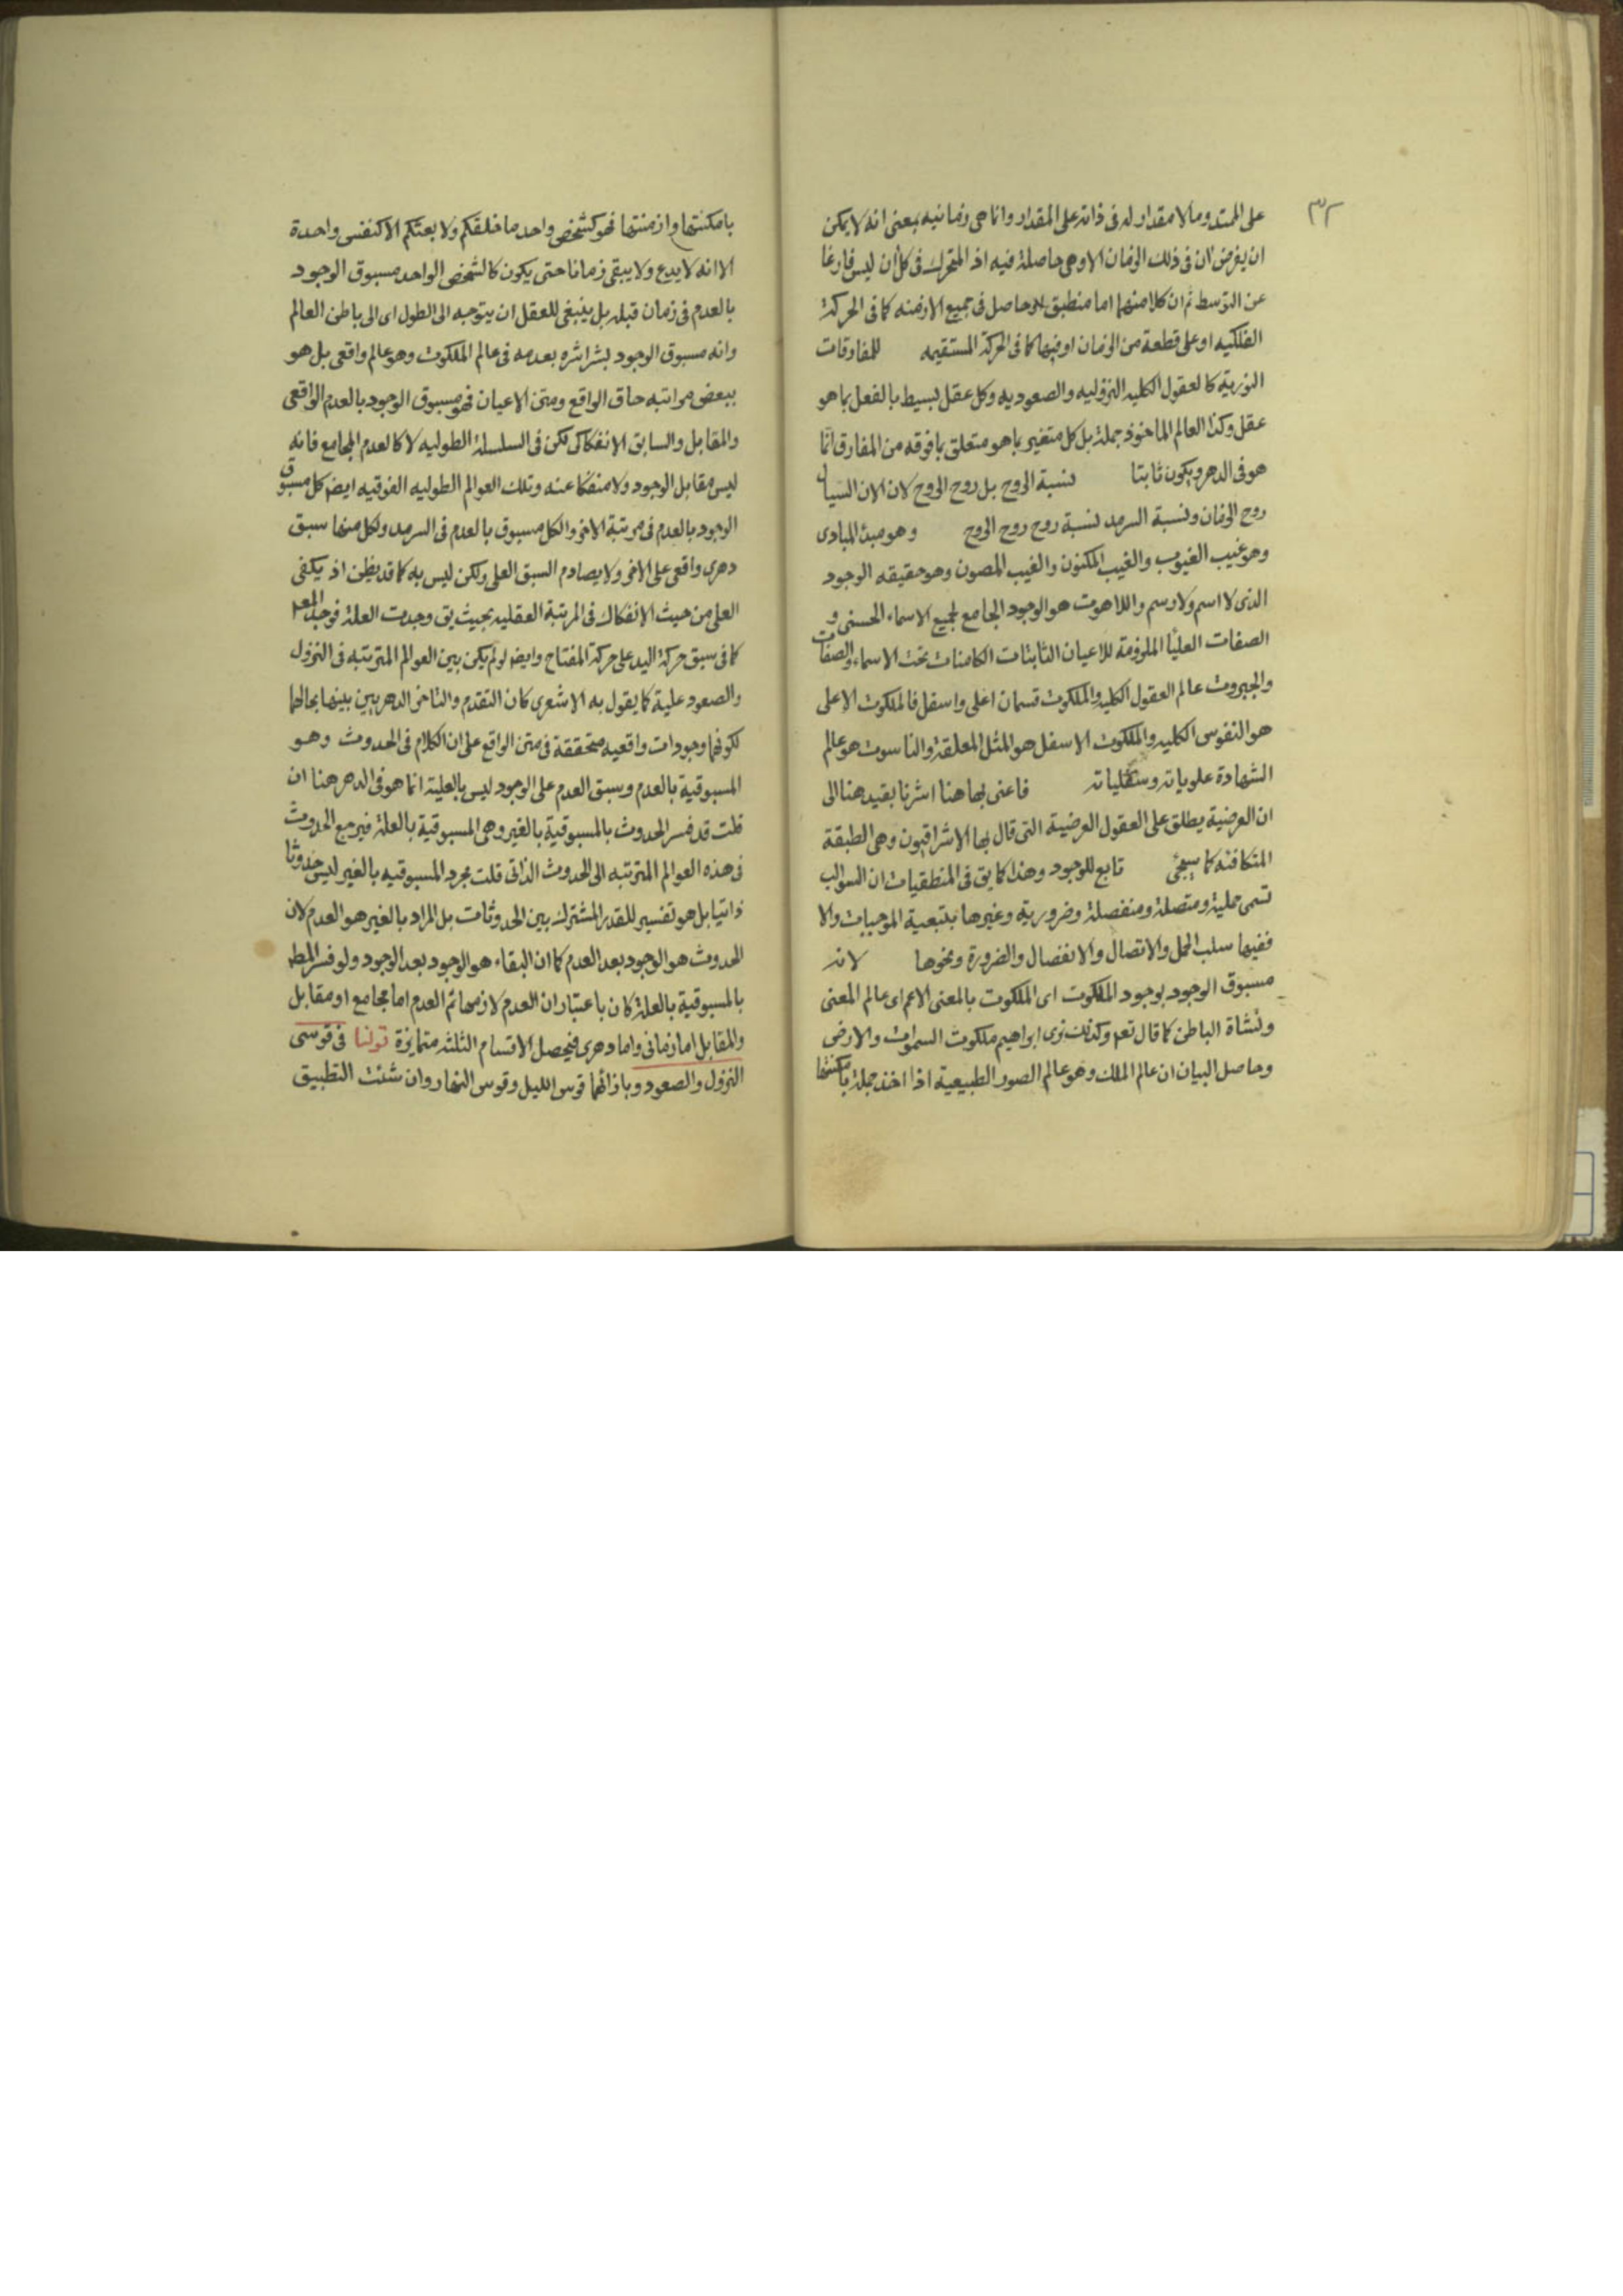 ٣٢
على الممتد وما لا مقدار له فى ذاته على المقدار وانما هى زمانيه بمعنى انه لا يمكن
ان يفرض ان فى ذلك الزمان الا وهى حاصلة فيه اذ المتحرك فى كل ان ليس فارغا
عن التوسط ثم ان كلا منهما اما منطبق حاصل فى جميع الازمنه كما فى الحركة
الفلكيه او على قطعة من الزمان او فيها كما فى الحركة المستقيمه للمفارقات
النورية كالعقول الكليه النزوليه والصعوديه وكل عقل بسيط بالفعل بما هو
عقل وكذا العالم الماخوذ جملة بل كل متغير بما هو متعلق بما فوقه من المفارق انما
هو فى الدهر ويكون ثابتا نسبة الروح بل روح الروح لان الان السيال
روح الزمان ونسبة السرمد نسبة روح روح الروح وهو مبدء المبادى
وهو غيب الغيوب والغيب المكنون والغيب المصون وهو حقيقه الوجود
الذى لا اسم ولا رسم واللاهوت هو الوجود الجامع لجميع الاسماء الحسنى و
الصفات العليا الملزومة للاعيان الثابتات الكامنات تحت الاسماء والصفات
والجبروت عالم العقول الكليه والملكوت قسمان اعلى واسفل فالملكوت الاعلى
هو النفوس الكليه والملكوت الاسفل هو المثل المعلقة والناسوت هو عالم
الشهادة علوياته وسفلياته فاعنى بها هنا اشرنا بقيد هنا الى
ان العرضية يطلق على العقول العرضية التى قال بها الاشراقيون وهى الطبقة
المتكافئه كما سيجئ تابع للوجود وهذا كما يق فى المنطقيات ان السوالب
تسمى حملية ومتصلة ومنفصلة وضرورية وغيرها بتبعية الموجبات والا
ففيها سلب الحمل والاتصال والانفصال والضرورة ونحوها لانه
مسبوق الوجود بوجود الملكوت اى الملكوت بالمعنى الاعم اى عالم المعنى
ونشاة الباطن كما قال تعم وكذلك نرى ابراهيم ملكوت السموات والارض
وحاصل البيان ان عالم الملك وهو عالم الصور الطبيعية اذا اخذ جملة بامكنتها
بامكنتها وازمنتها فهو كشخص واحد ما خلقكم ولا بعثكم الا كنفس واحدة
الا انه لا يدع ولا يبقى زمانا حتى يكون كالشخص الواحد مسبوق الوجود
بالعدم فى زمان قبله بل ينبغى للعقل ان يتوجه الى الطول اى الى باطن العالم
وانه مسبوق الوجود بشراشره بعدمه فى عالم الملكوت وهو عالم واقعى بل هو
ببعض مراتبه حاق الواقع ومتن الاعيان فهو مسبوق الوجود بالعدم الواقعى
والمقابل والسابق الانفكاكى لكن فى السلسلة الطوليه لا كالعدم المجامع فانه
ليس مقابل الوجود ولا منفكا عنه وتلك العوالم الطوليه الفوقيه ايضا كل مسبوق
الوجود بالعدم فى مرتبة الاخر والكل مسبوق بالعدم فى السرمد ولكل منها سبق
دهرى واقعى على الاخر ولا يصادم السبق العلى ولكن ليس به كما قد يظن اذ يكفى
العلى من حيث الانفكاك فى المرتبة العقليه بحيث يق وجدت العلة فوجد المعلم
كما فى سبق حركة اليد على حركة المفتاح وايضا لو لم يكن بين العوالم المترتبه فى النزول
والصعود علية كما يقول به الاشعرى كان التقدم والتاخر الدهريين بينها بحالهما
لكونها وجودات واقعيه متحققة فى متن الواقع على ان الكلام فى الحدوث وهو
المسبوقية بالعدم وسبق العدم على الوجود ليس بالعلية انما هو فى الدهر هنا ان
قلت قد فسر الحدوث بالمسبوقية بالغير وهى المسبوقية بالعلة فيرجع الحدوث
فى هذه العوالم المترتبه الى الحدوث الذاتى قلت مجرد المسبوقيه بالغير ليس حدوثا
ذاتيا بل هو تفسير للقدر المشترك بين الحدوثات بل المراد بالغير هو العدم لان
الحدوث هو الوجود بعد العدم كما ان البقاء هو الوجود بعد الوجود ولو فسر المط
بالمسبوقية بالعلة كان باعتبار ان العدم لازمها ثم العدم اما مجامع او مقابل
والمقابل اما زمانى واما دهرى فيحصل الاقسام الثلثه متمايزة قولنا فى قوسى
النزول والصعود وبازائهما قوس الليل وقوس النهار وان شئت التطبيق